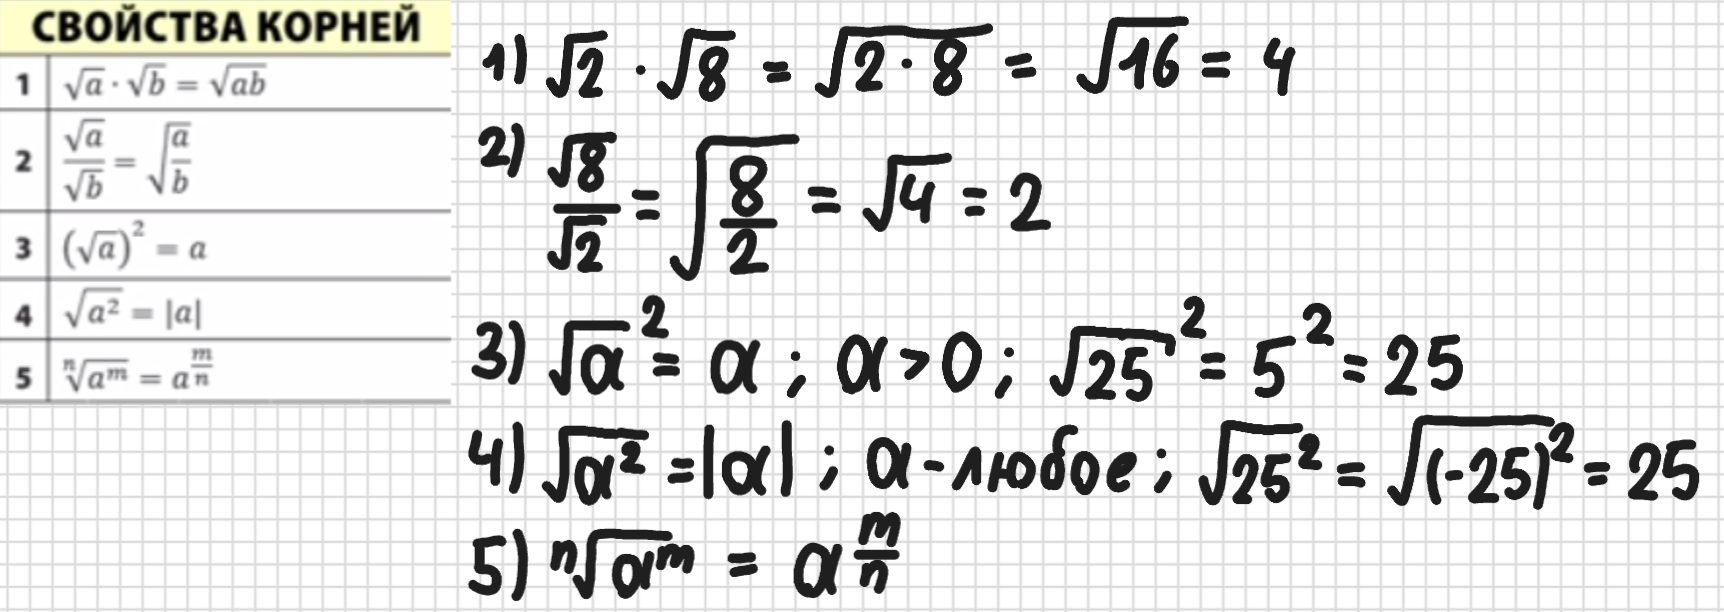 СВОЙСТВА КОРНЕЙ
1 √a · √b = √ab
2 √a/√b = √(a/b)
3 (√a)² = a
4 √a² = |a|
5 ⁿ√aᵐ = a^(m/n)
1) √2 · √8 = √(2 · 8) = √16 = 4
2) √8/√2 = √(8/2) = √4 = 2
3) √a² = a ; a > 0 ; √25² = 5² = 25
4) √a² = |a| ; a - любое ; √25² = √(-25)² = 25
5) ⁿ√aᵐ = a^(m/n)